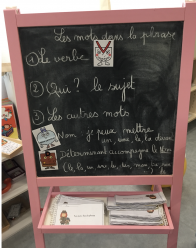 Les mots dans la phrase
① Le verbe
② Qui ? le sujet
③ Les autres mots
Nom je peux mettre
un, une, le, la devant
Déterminant accompagne le Nom